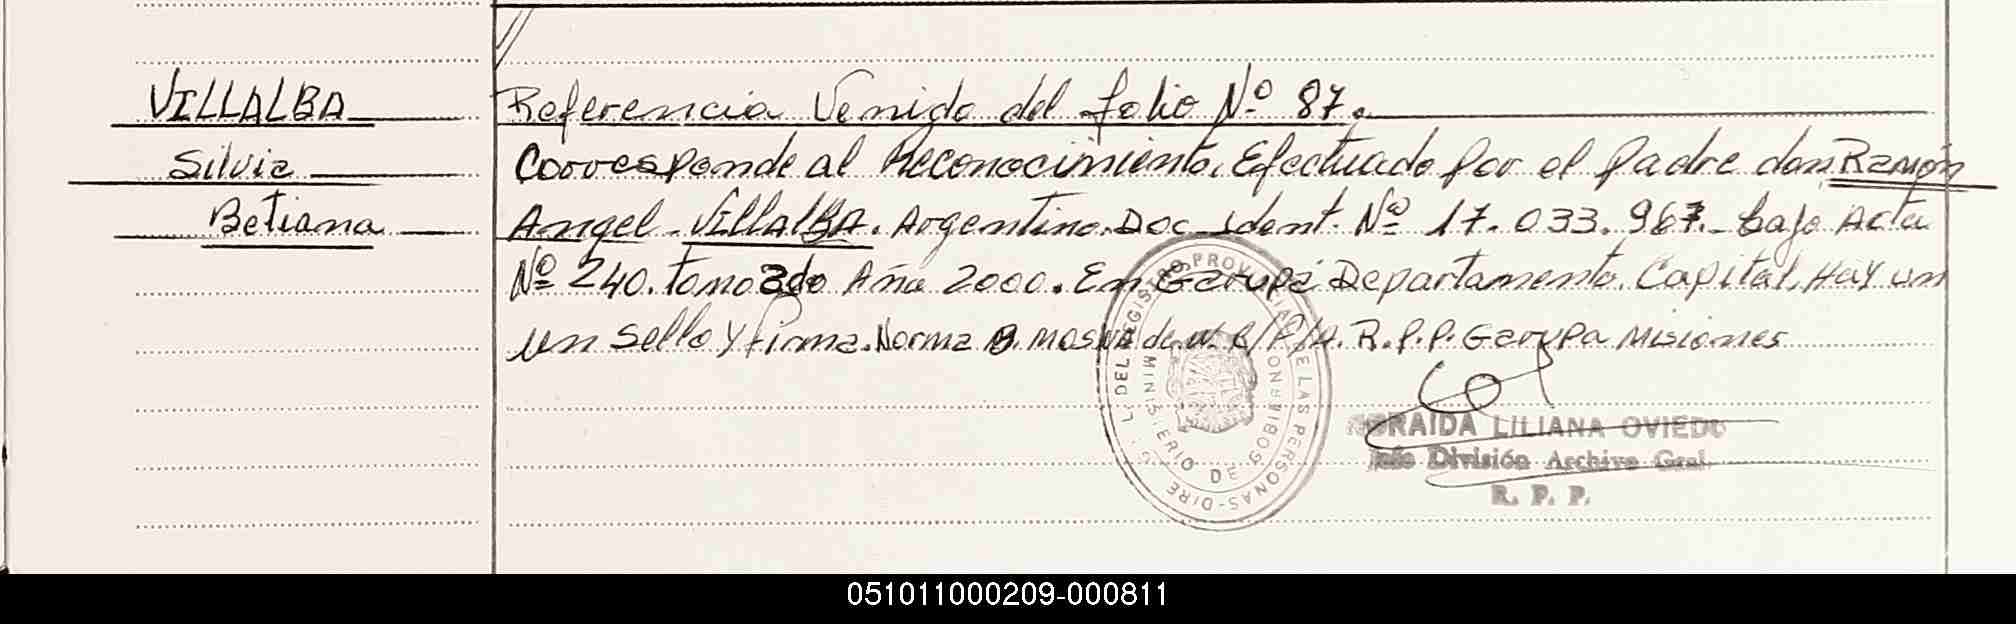 VILLALBA
Silvia
Betiana
Referencia Venido del folio Nº 87.
Corresponde al Reconocimiento. Efectuado por el padre don Ramón
Angel - Villalba. Argentino. Doc - Ident. Nº 17.033.967.- bajo Acta
Nº 240. tomo 2do Año 2000. En Garupá Departamento. Capital. Hay un
un Sello y firma. Norma B. de W. R.P.P. Garupa Misiones
LILIANA OVIEDO
División Archivo Gral.
R. P. P.
DEL REGISTRO PROVINCIAL DE LAS PERSONAS - DIRE
MINISTERIO DE GOBIERNO
051011000209-000811